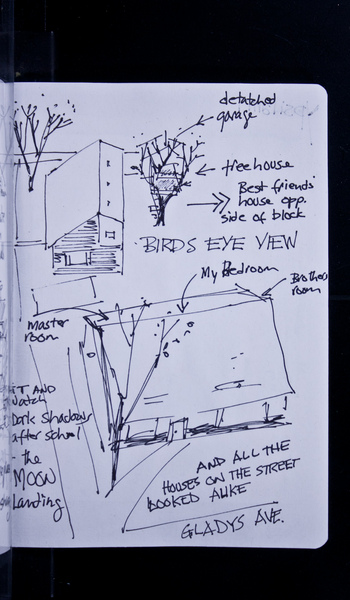 detatched
garage
treehouse
Best friends'
house opp.
side of block
BIRDS EYE VIEW
My Bedroom
Brothers
room
Master
room
IT AND
Watch
Dark Shadows
after school
the
MOON
Landing
AND ALL THE
HOUSES ON THE STREET
LOOKED ALIKE
GLADYS AVE.